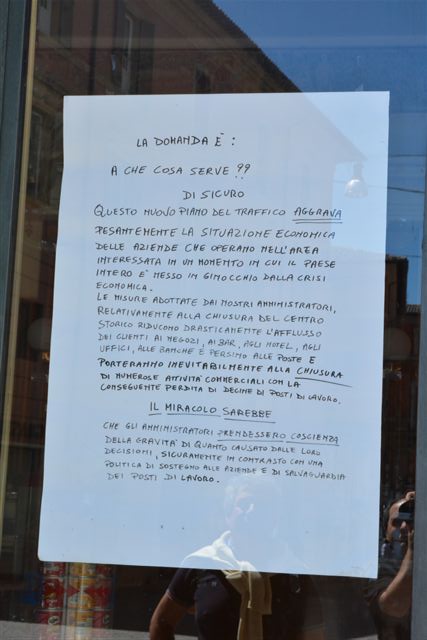 LA DOMANDA È :
A CHE COSA SERVE ??
DI SICURO
QUESTO NUOVO PIANO DEL TRAFFICO AGGRAVA
PESANTEMENTE LA SITUAZIONE ECONOMICA
DELLE AZIENDE CHE OPERANO NELL'AREA
INTERESSATA IN UN MOMENTO IN CUI IL PAESE
INTERO E' MESSO IN GINOCCHIO DALLA CRISI
ECONOMICA.
LE MISURE ADOTTATE DAI NOSTRI AMMINISTRATORI,
RELATIVAMENTE ALLA CHIUSURA DEL CENTRO
STORICO RIDUCONO DRASTICAMENTE L'AFFLUSSO
DEI CLIENTI AI NEGOZI, AI BAR, AGLI HOTEL, AGLI
UFFICI, ALLE BANCHE E PERSINO ALLE POSTE E
PORTERANNO INEVITABILMENTE ALLA CHIUSURA
DI NUMEROSE ATTIVITÀ COMMERCIALI CON LA
CONSEGUENTE PERDITA DI DECINE DI POSTI DI LAVORO.
IL MIRACOLO SAREBBE
CHE GLI AMMINISTRATORI PRENDESSERO COSCIENZA
DELLA GRAVITA' DI QUANTO CAUSATO DALLE LORO
DECISIONI, SICURAMENTE IN CONTRASTO CON UNA
POLITICA DI SOSTEGNO ALLE AZIENDE E DI SALVAGUARDIA
DEI POSTI DI LAVORO.